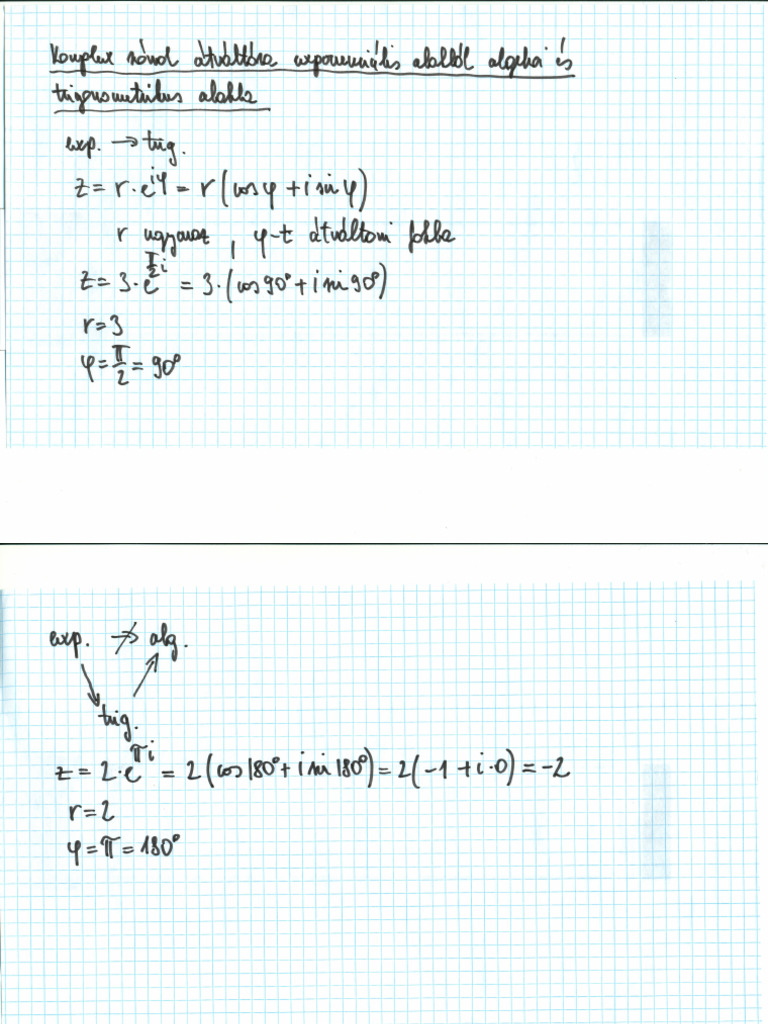 Komplex számok átváltása exponenciális alakból algebrai és
trigonometrikus alakba
exp. → trig.
z = r·e^{iφ} = r(cosφ + i sinφ)
r ugyanaz, φ-t átváltani fokba
z = 3·e^{π/2 i} = 3·(cos90° + i sin90°)
r = 3
φ = π/2 = 90°
exp. ↛ alg.
↘ ↗
trig.
z = 2·e^{πi} = 2(cos180° + i sin180°) = 2(-1 + i·0) = -2
r = 2
φ = π = 180°